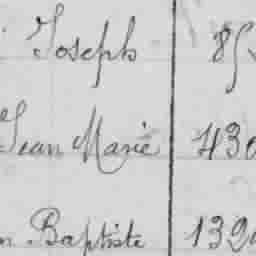 Joseph 85
Jean Marie 430
n Baptiste 132